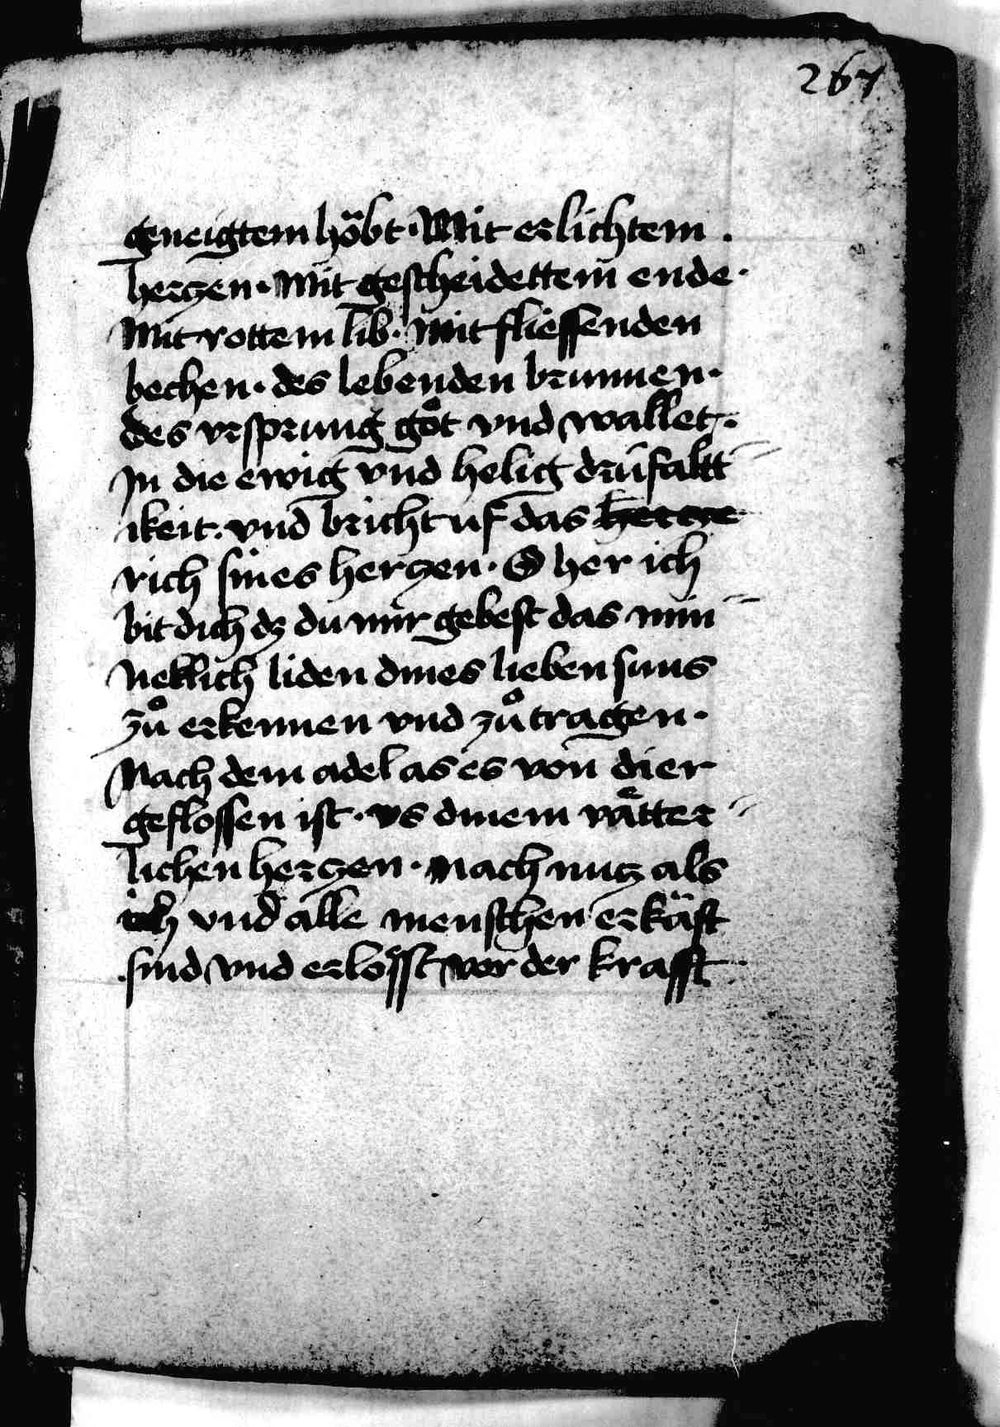 267
geneigtem höbt · Mit erlichtem ·
herzen · Mit gescheidettem ende ·
Mit rottem lib · Mit fliessenden
bechen · des lebenden brunnen ·
des vrsprung göt vnd wallet ·
Jn die ewig vnd helig drüfaltt-
ikeit · vnd bricht uf das hertze
rich sines herzen · O her ich
bit dich dz du mir gebest das min-
neklich liden dines lieben suns
zuͦ erkennen vnd zuͦ tragen ·
Nach dem adel as es von dier
geflossen ist · vs dinem vätter-
lichen herzen · nach nutz als
ich vnd alle menschen erkäft
sind vnd erlösst vor der krafft